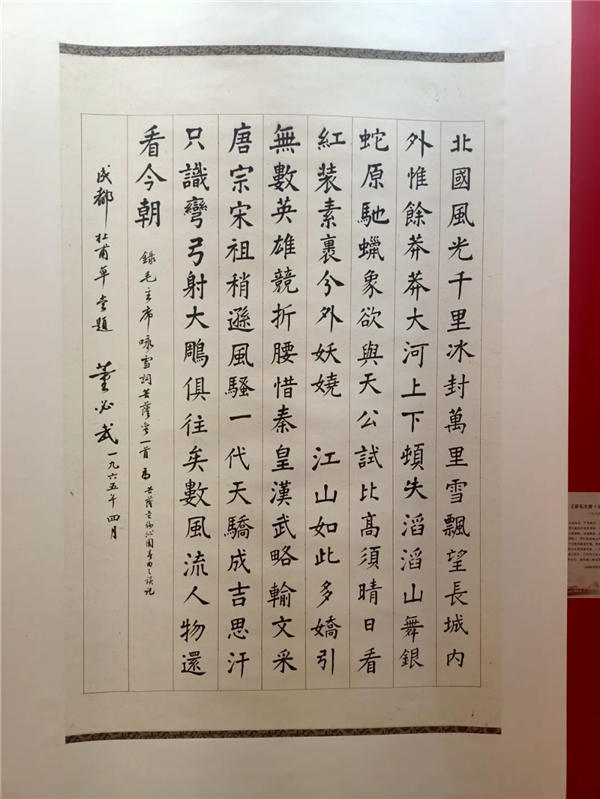 北國風光千里冰封萬里雪飄望長城内
外惟餘莽莽大河上下頓失滔滔山舞銀
蛇原馳蠟象欲與天公試比高須晴日看
紅装素裹分外妖嬈 江山如此多嬌引
無數英雄競折腰惜秦皇漢武略輸文采
唐宗宋祖稍遜風騷一代天驕成吉思汗
只識彎弓射大鵰俱往矣數風流人物還
看今朝
錄毛主席咏雪詞菩薩蛮一首爲
菩薩蛮沁園春之误記
成都杜甫草堂題 董必武 一九六五年四月